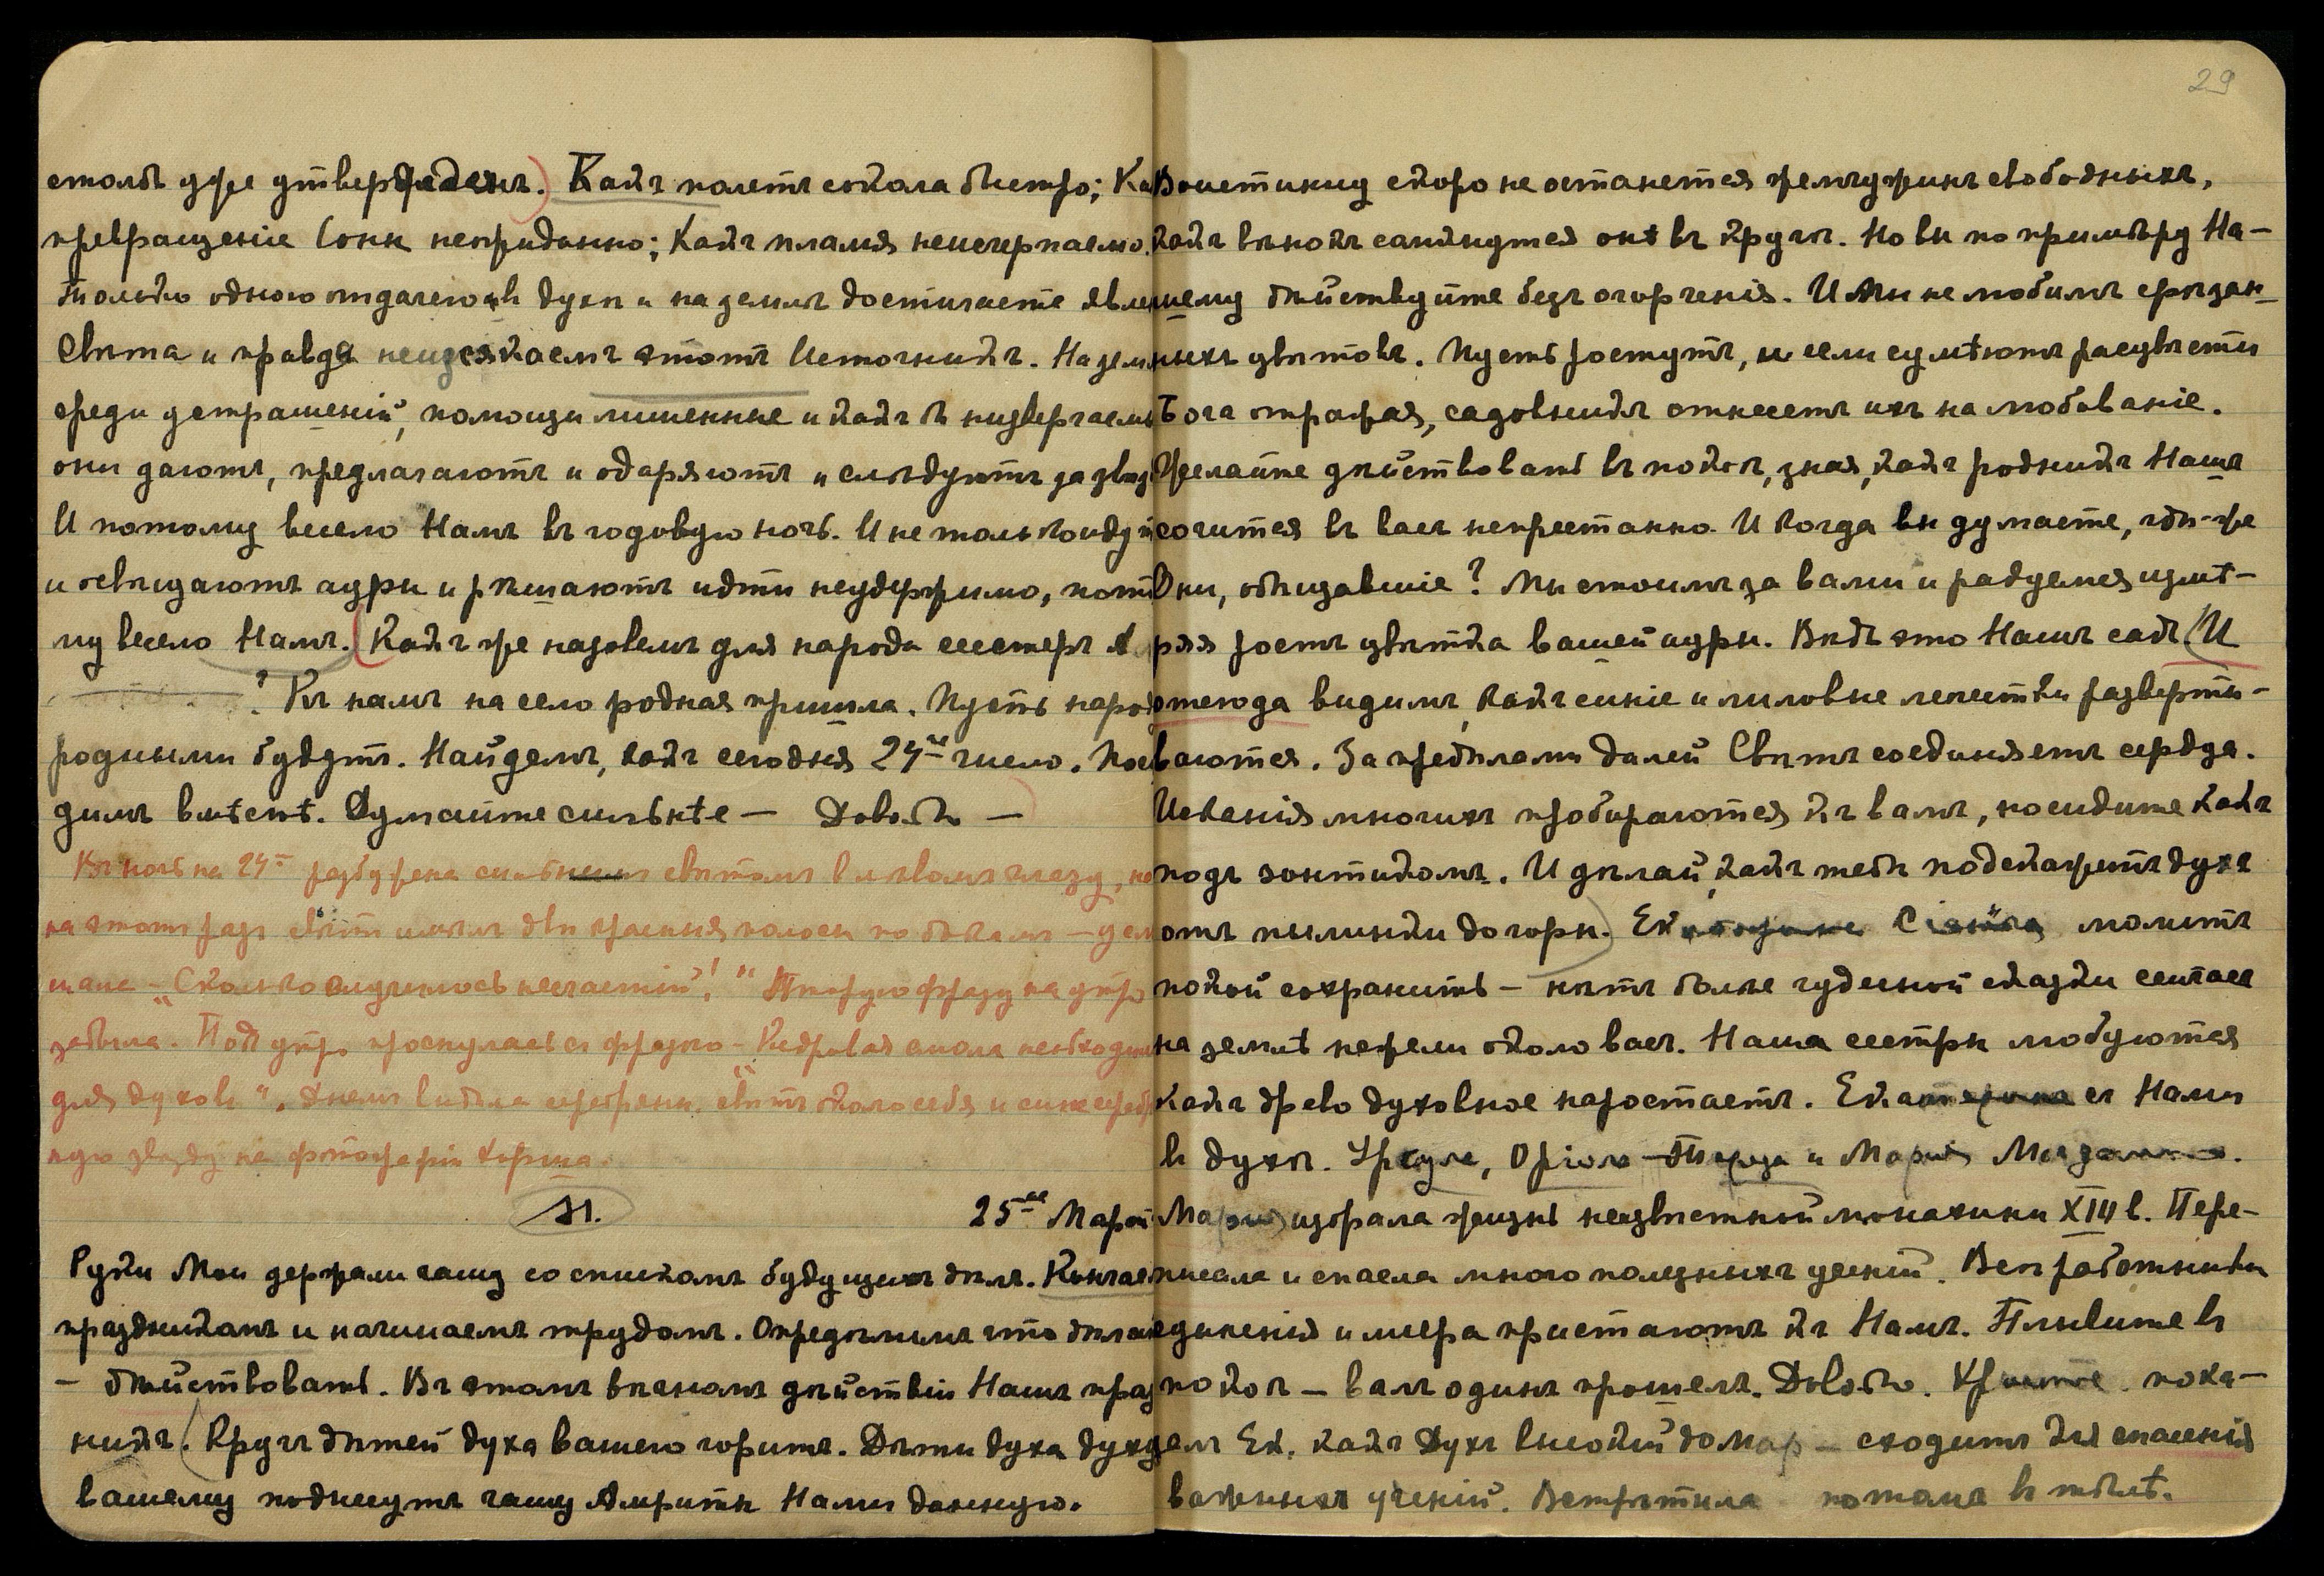 столбъ уже утвержденъ.) Какъ полетъ сокола быстро; Ка
превращеніе Сони неожиданно; Какъ пламя неисчерпаемо.
Только одного отдалего въ духѣ и на землѣ достигаете явле
Свѣта и правда неиссякаемъ этотъ Источникъ. На земл
среди устрашеній, помощи лишенные и какъ бы низвергаемы
они даютъ, предлагаютъ и одаряютъ и слѣдуютъ за звѣзд
И потому весело Намъ въ годовую ночь. И не только идут
и освѣщаютъ ауры и рѣшаютъ идти неудержимо, пото
му весело Намъ. (Какъ же назовемъ для народа сестеръ А
? Къ намъ на село родная пришла. Пусть народ
родными будутъ. Найдемъ, какъ сегодня 24ое число. Пос
димъ вмѣстѣ. Думайте сильнѣе — Довольно —
Въ ночь на 24ое разбужена сильнымъ свѣтомъ въ лѣвомъ глазу, но
на этотъ разъ свѣтъ имѣлъ двѣ красныя полосы по бокамъ — услы
шала — "Сколько случилось несчастій!" Вторую фразу на утро
забыла. Подъ утро проснулась съ фразою — "Кедровая смола необходима
для духовъ". Днемъ видѣла серебрян. свѣтъ около себя и синесеребр
ную звѣзду на фотографіи Хорша.
М. 25ое Марта
Руки Мои держали чашу со спискомъ будущихъ дѣлъ. Кончаем
праздникомъ и начинаемъ трудомъ. Опредѣлимъ что дѣлае
— дѣйствовать. Въ этомъ вѣчномъ дѣйствіи Нашъ праз
никъ. (Кругъ дѣтей духа вашего горитъ. Дѣти духа духу
вашему поднесутъ чашу Амриты Нами данную.
29
Воистину скоро не останется жемчужинъ свободныхъ,
какъ вѣнокъ самкнутся онѣ въ кругъ. Но вы по примѣру На-
шему дѣйствуйте безъ огорченія. И Мы не любимъ срѣзан-
ныхъ цвѣтовъ. Пусть ростутъ, и если сумѣютъ расцвѣсти
Бога отражая, садовникъ отнесетъ ихъ на любованіе.
Желайте дѣйствовать въ покоѣ, зная, какъ родникъ Нашъ
сочится въ васъ непрестанно. И когда вы думаете, гдѣ-же
Они, обѣщавшіе? Мы стоимъ за вами и радуемся измѣ-
ряя ростъ цвѣтка вашей ауры. Вѣдь это Нашъ садъ (И
отсюда видимъ, какъ синіе и лиловые лепестки разверты-
ваются. За предѣлами далей Свѣтъ соединяетъ сердца.
Исканія многихъ пробираются къ вамъ, но сидите какъ
подъ зонтикомъ. И дѣлай, какъ тебѣ подскажетъ духъ
отъ пылинки до горы.) Екатерина Сіенская молитъ
покой сохранить — нѣтъ болѣе чудесной сказки сейчасъ
на землѣ нежели около васъ. Наша сестры любуются
какъ древо духовное наростаетъ. Екатерина съ Нами
въ духѣ. Урсула, Оріола — Тереза и Марія Магдалина.
Марія избрала жизнь неизвѣстной монахини XIII в. Пере-
писала и спасла много полезныхъ ученій. Всѣ работники
единенія и мира пристаютъ къ Намъ. Плывите въ
покоѣ — валъ одинъ прошелъ. Довольно. Христе. поха-
емъ Ек. какъ Духъ высокій до Мар — сходитъ для спасенія
важныхъ ученій. Встрѣтила потомъ въ тѣлѣ.